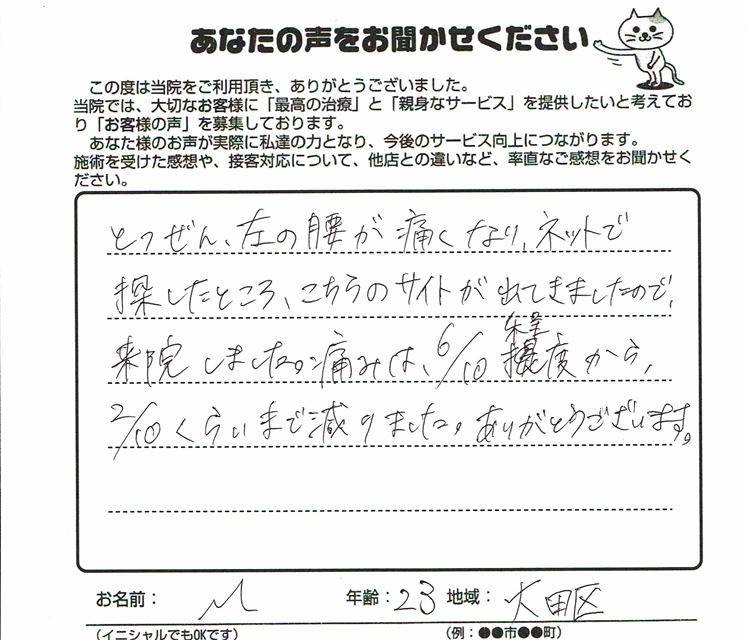 あなたの声をお聞かせください
この度は当院をご利用頂き、ありがとうございました。
当院では、大切なお客様に「最高の治療」と「親身なサービス」を提供したいと考えてお
り「お客様の声」を募集しております。
あなた様のお声が実際に私達の力となり、今後のサービス向上につながります。
施術を受けた感想や、接客対応について、他店との違いなど、率直なご感想をお聞かせく
ださい。
とつぜん、左の腰が痛くなり、ネットで
探したところ、こちらのサイトが出てきましたので、
来院しました。痛みは、6/10程度から、
2/10くらいまで減りました。ありがとうございます。
お名前： M 年齢：23 地域： 大田区
（イニシャルでもOKです） （例：●●市●●町）